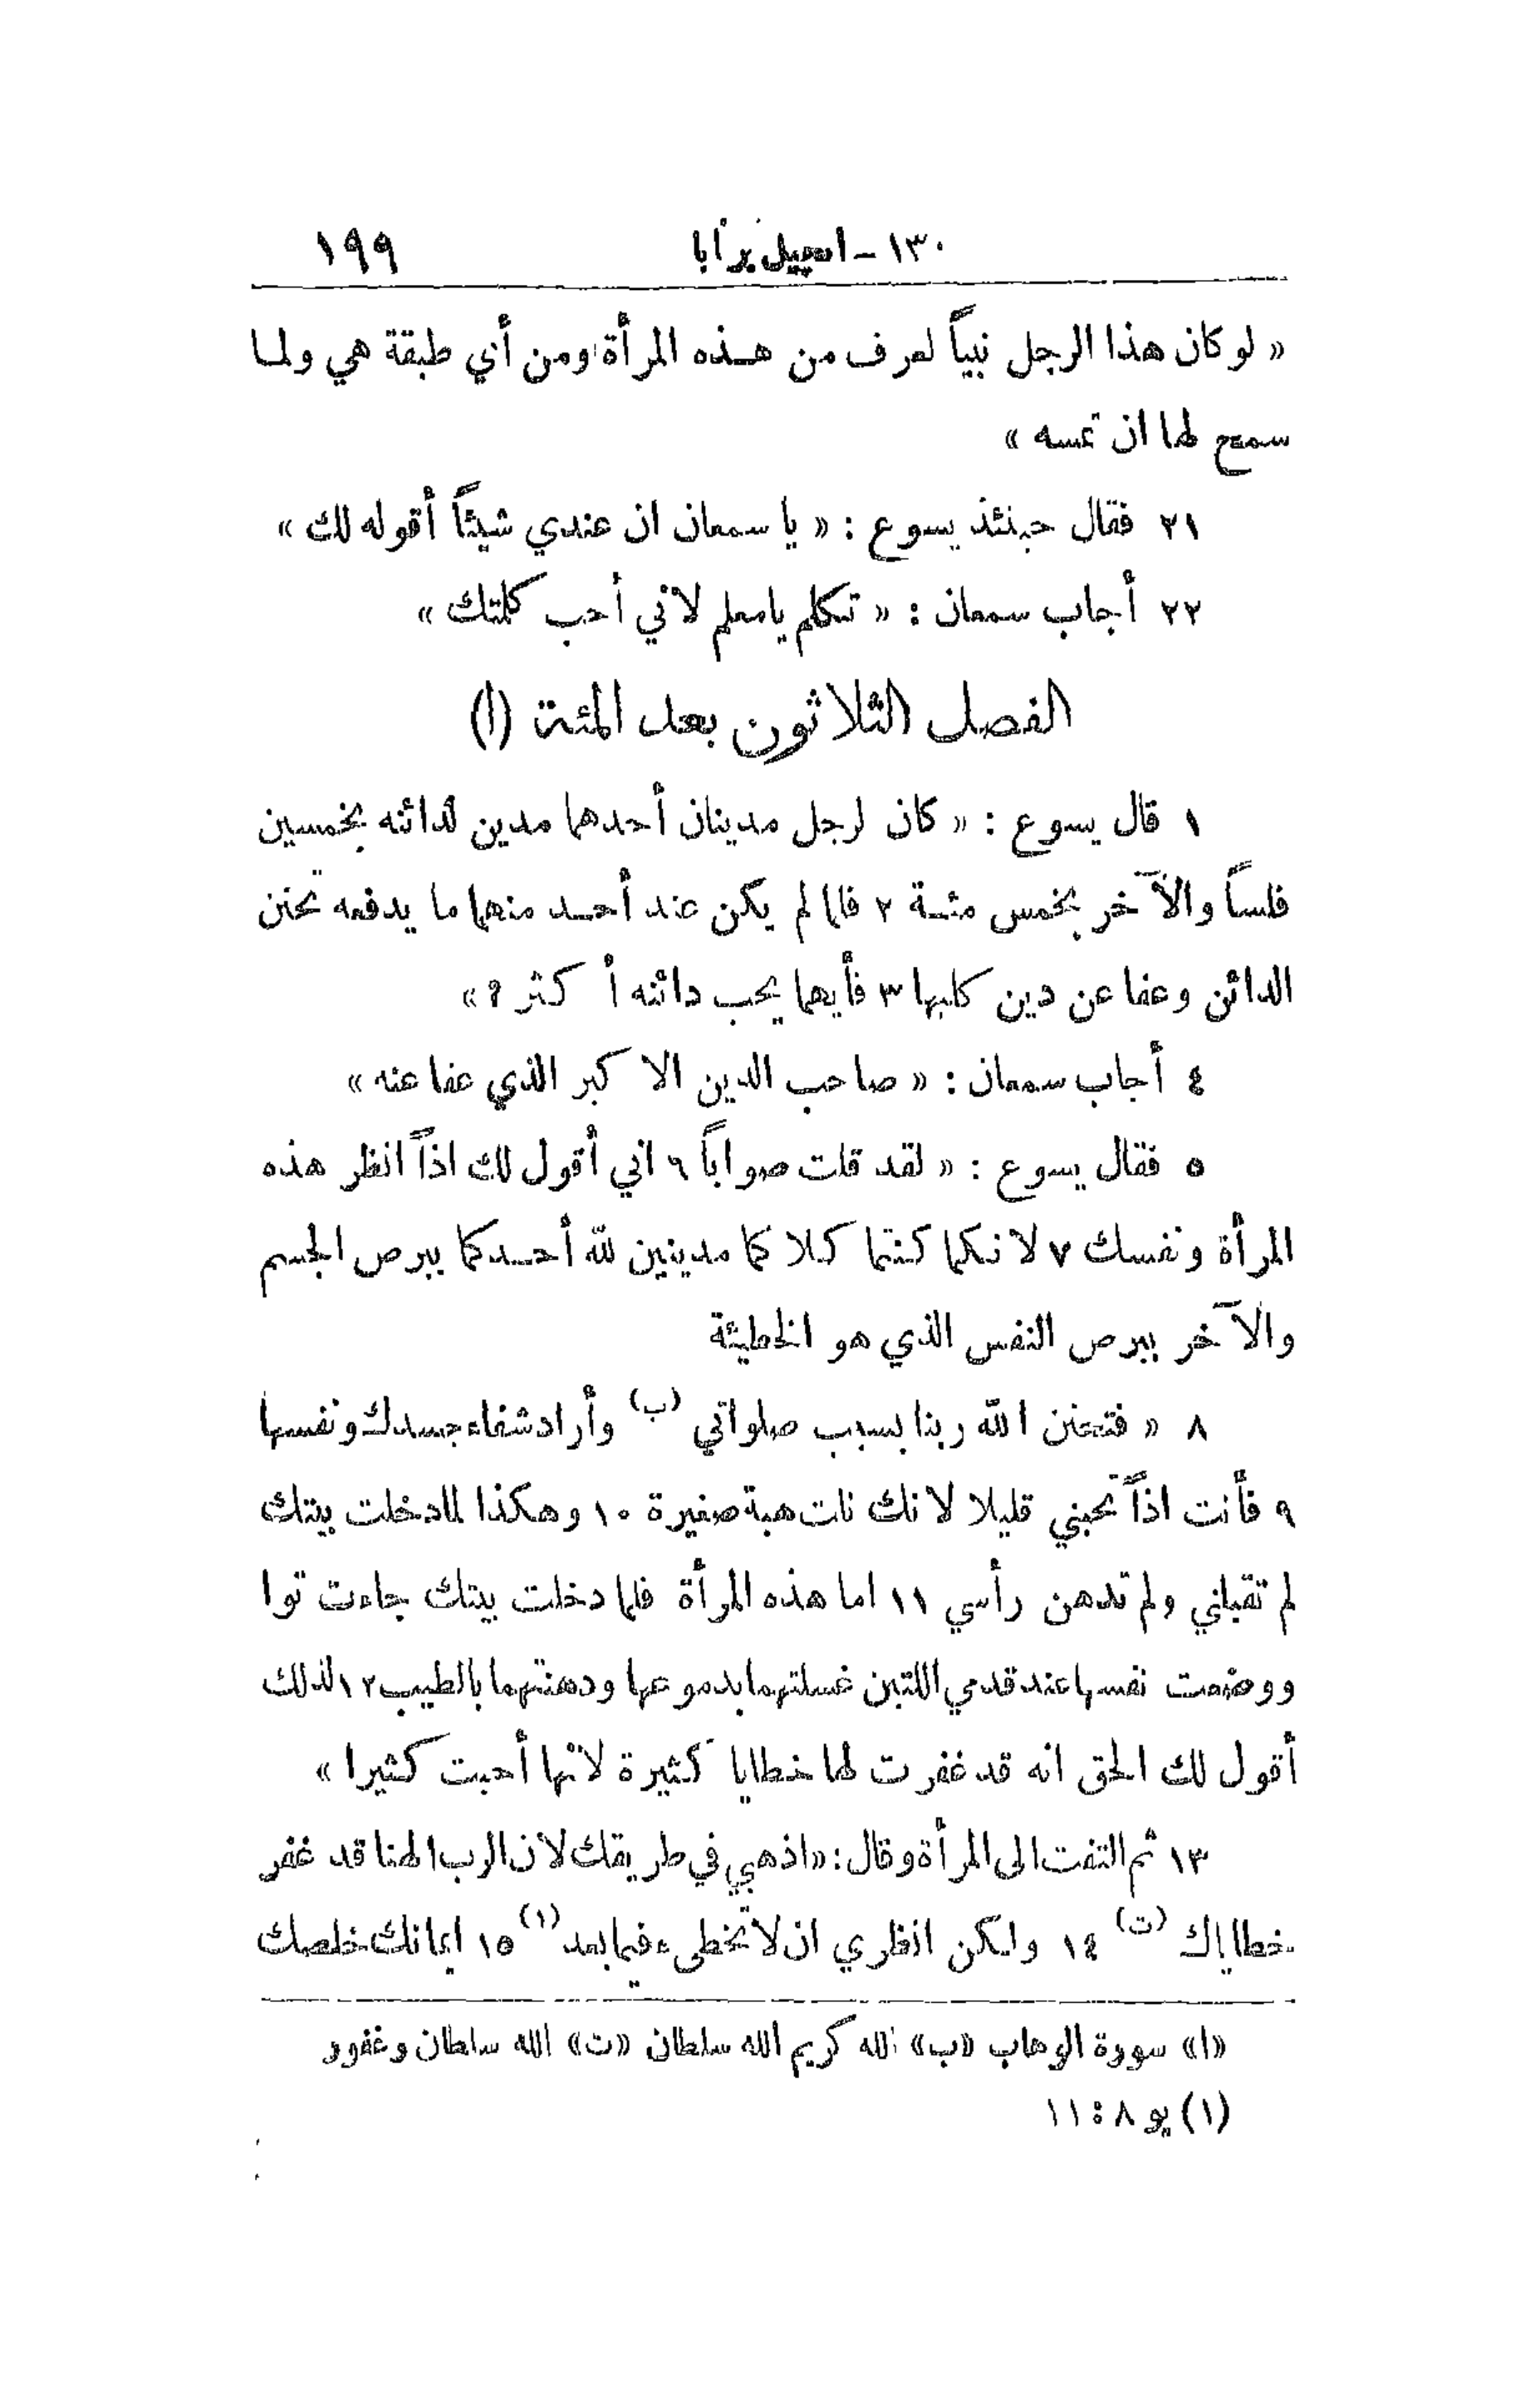 ١٣٠ - ١٩٩
« لو كان هذا الرجل نبياً لعرف من هذه المرأة ومن أي طبقة هي ولما
سمح لها ان تمسه »
٢١ فقال حينئذ يسوع : « يا سمعان ان عندي شيئاً أقوله لك »
٢٢ أجاب سمعان : « تكلم يا معلم لاني أحب كلمتك »
الفصل الثلاثون بعد المئة (ا)
١ قال يسوع : « كان لرجل مدينان أحدهما مدين لدائنه بخمسين
فلساً والآخر بخمس مئة ٢ فلما لم يكن عند أحد منهما ما يدفعه تحنن
الدائن وعفا عن دين كليهما ٣ فأيهما يحب دائنه أكثر ؟ »
٤ أجاب سمعان : « صاحب الدين الاكبر الذي عفا عنه »
٥ فقال يسوع : « لقد قلت صواباً ٦ اني أقول لك اذاً انظر هذه
المرأة ونفسك ٧ لانكما كنتما كلاكما مدينين لله أحدكما ببرص الجسم
والآخر ببرص النفس الذي هو الخطيئة
٨ « فتحنن الله ربنا بسبب صلواتي (ب) وأراد شفاء جسدك ونفسها
٩ فأنت اذاً تحبني قليلا لانك نلت هبة صغيرة ١٠ وهكذا لما دخلت بيتك
لم تقبلني ولم تدهن رأسي ١١ اما هذه المرأة فلما دخلت بيتك جاءت توا
ووضعت نفسها عند قدمي اللتين غسلتهما بدموعها ودهنتهما بالطيب ١٢ لذلك
أقول لك الحق انه قد غفرت لها خطايا كثيرة لانها أحبت كثيرا »
١٣ ثم التفت الى المرأة وقال : « اذهبي في طريقك لان الرب الهنا قد غفر
خطاياك (ت) ١٤ ولكن انظري ان لا تخطىء فيما بعد (١) ١٥ ايمانك خلصك
«ا» سورة الوهاب «ب» الله كريم الله سلطان «ت» الله سلطان وغفور
(١) يو ٨ : ١١